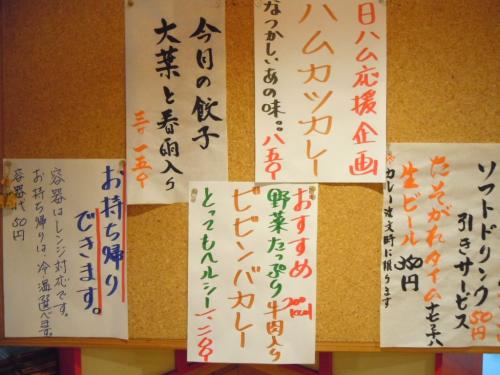 日ハム応援企画
ハムカツカレー
なつかしいあの味‥ 八五〇
今日の餃子
大葉と春雨入り
三ケ 一五〇
ソフトドリンク 50円
引きサービス
たそがれタイム 七~八
生ビール 350円
※カレー注文時に限ります
おすすめ
野菜たっぷり 牛肉入り
ビビンバカレー
とってもヘルシー 一二〇〇
お持ち帰り
できます。
容器はレンジ対応です。
お持ち帰りは、冷温選べます。
容器代50円